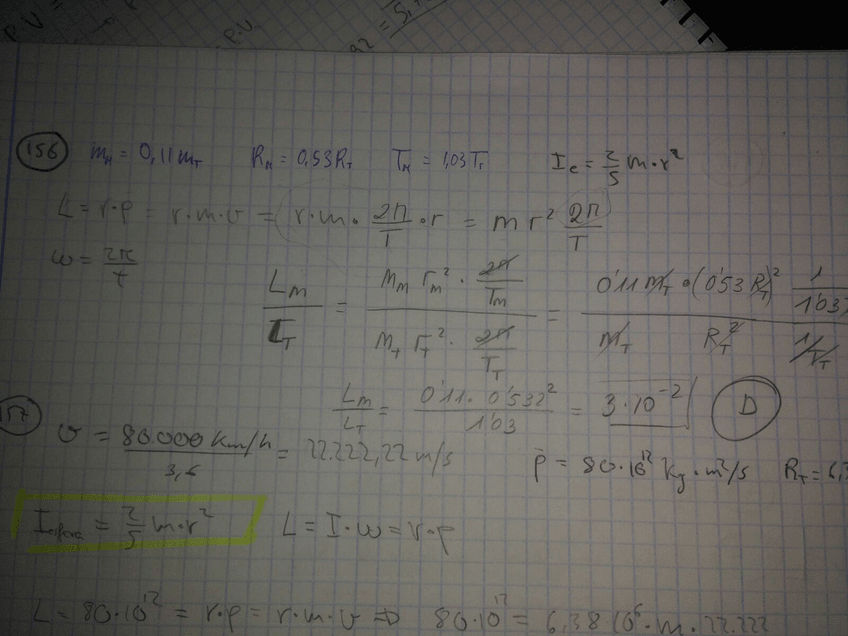 P.V =
P.V
156 m_M = 0,11 m_T R_M = 0,53 R_T T_M = 1,03 T_T I_e = 2/5 m·r²
L = r·p = r·m·v = r·m· 2π/T ·r = m r² 2π/T
ω = 2π/t
L_m/L_T = (M_m r_m² · 2π/T_m)/(M_T r_T² · 2π/T_T) = (0'11 m_T · (0'53 R_T)² 1/1'03)/(m_T R_T² 1/T_T)
L_m/L_T = (0'11 · 0'532²)/1'03 = 3·10⁻² D
157 v = 80000 km/h / 3,6 = 22.222,22 m/s p = 80·10¹² kg·m²/s R_T = 6,3
I_esfera = 2/5 m·r² L = I·ω = r·p
L = 80·10¹² = r·p = r·m·v ⇒ 80·10¹² = 6,38·10⁶·m·22.222